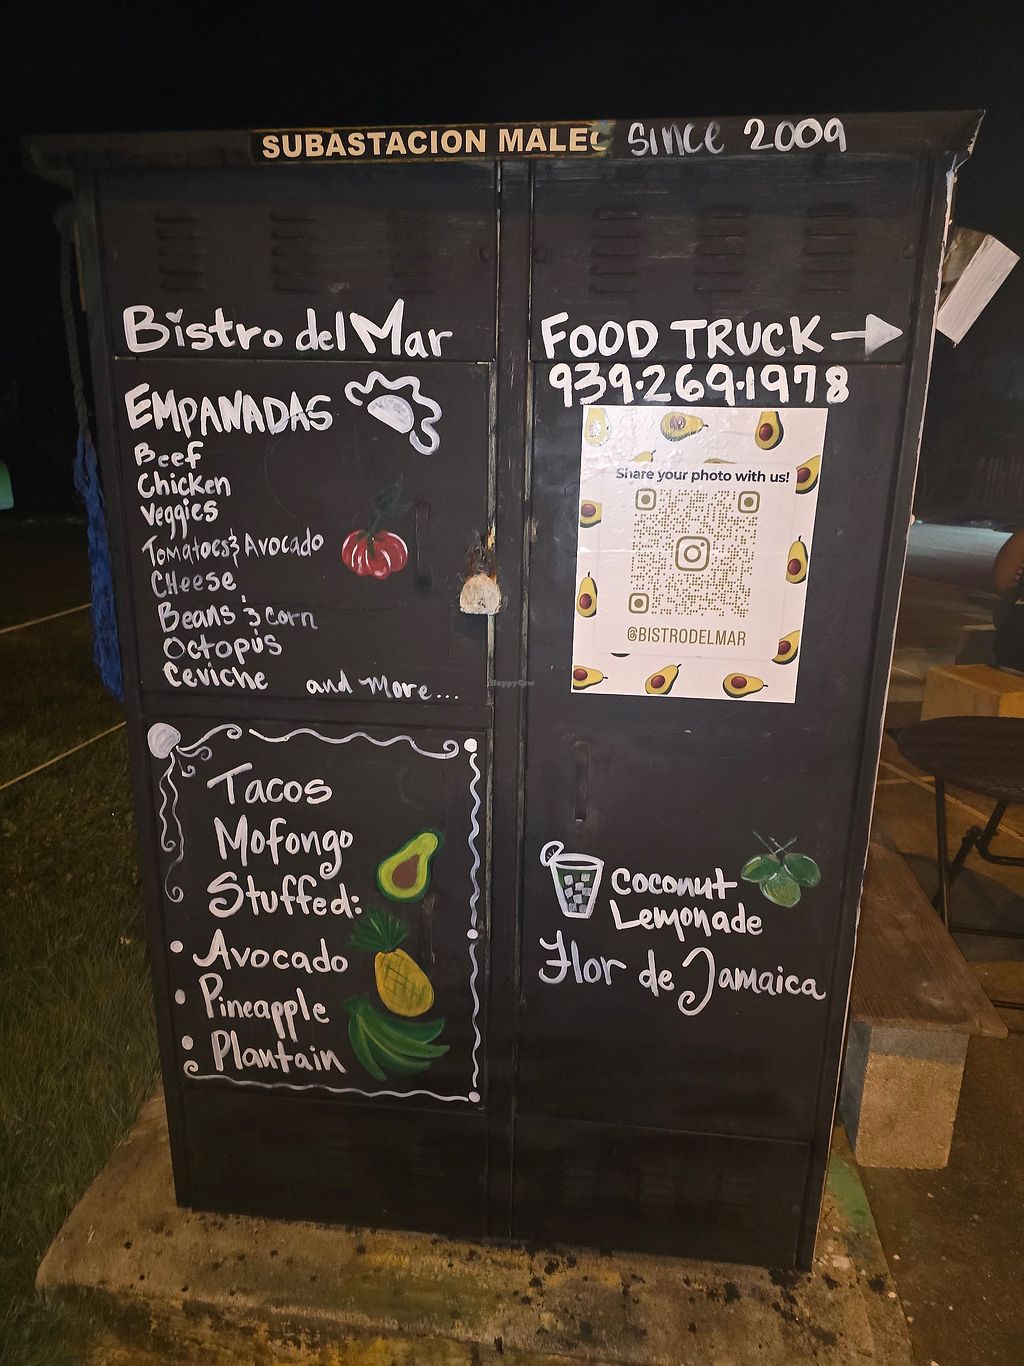 SUBASTACION MALEC since 2009
Bistro del Mar
EMPANADAS
Beef
Chicken
Veggies
Tomatoes & Avocado
CHeese
Beans & Corn
Octopus
Ceviche and more...
Tacos
Mofongo
Stuffed:
• Avocado
• Pineapple
• Plantain
FOOD TRUCK →
939.269.1978
Share your photo with us!
@BISTRODELMAR
HappyCow
coconut
Lemonade
Flor de Jamaica